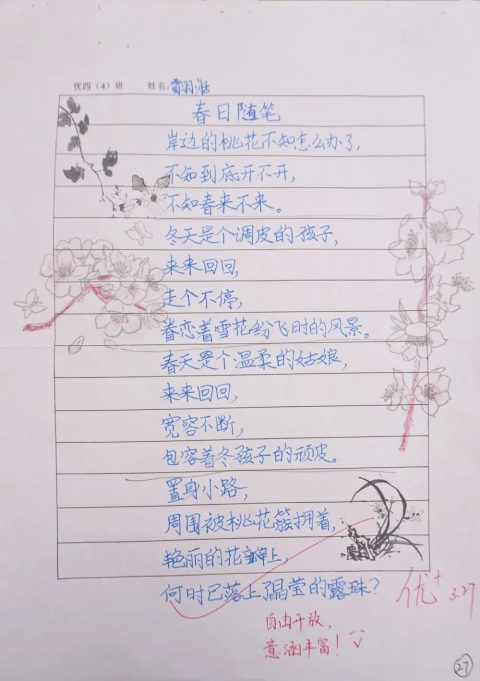 优四（4）班 姓名：雷羽浩
春日随笔
岸边的桃花不知怎么办了，
不知到底开不开，
不知春来不来。
冬天是个调皮的孩子，
来来回回，
走个不停，
眷恋着雪花纷飞时的风景。
春天是个温柔的姑娘，
来来回回，
宽容不断，
包容着冬孩子的顽皮。
置身小路，
周围被桃花簇拥着，
艳丽的花瓣上，
何时已落上了晶莹的露珠？
优+ 3.27
自由开放，
意涵丰富！
27